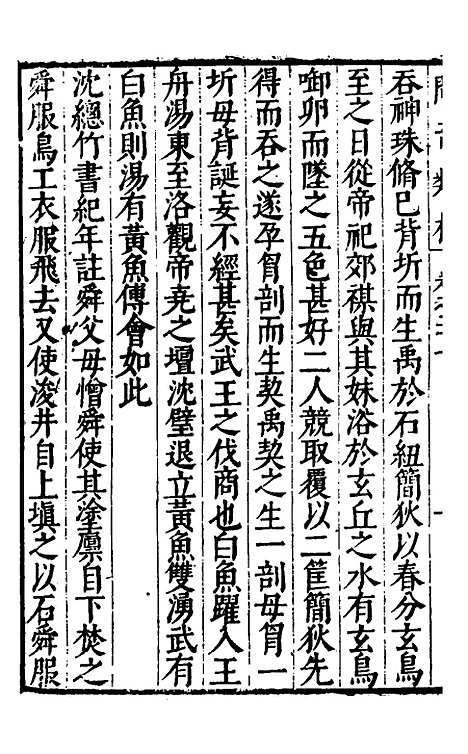 吞神珠脩巳背圻而生禹於石紐簡狄以春分玄鳥
至之日從帝祀郊禖與其妹浴於玄丘之水有玄鳥
啣卵而墜之五色甚好二人競取覆以二筐簡狄先
得而吞之遂孕胷剖而生契禹契之生一剖母胷一
圻母背誕妄不經甚矣武王之伐商也白魚躍入王
舟湯東至洛觀帝堯之壇沈璧退立黃魚雙湧武有
白魚則湯有黃魚傅會如此
沈緫竹書紀年註舜父母憎舜使其塗廪自下焚之
舜服鳥工衣服飛去又使浚井自上塡之以石舜服